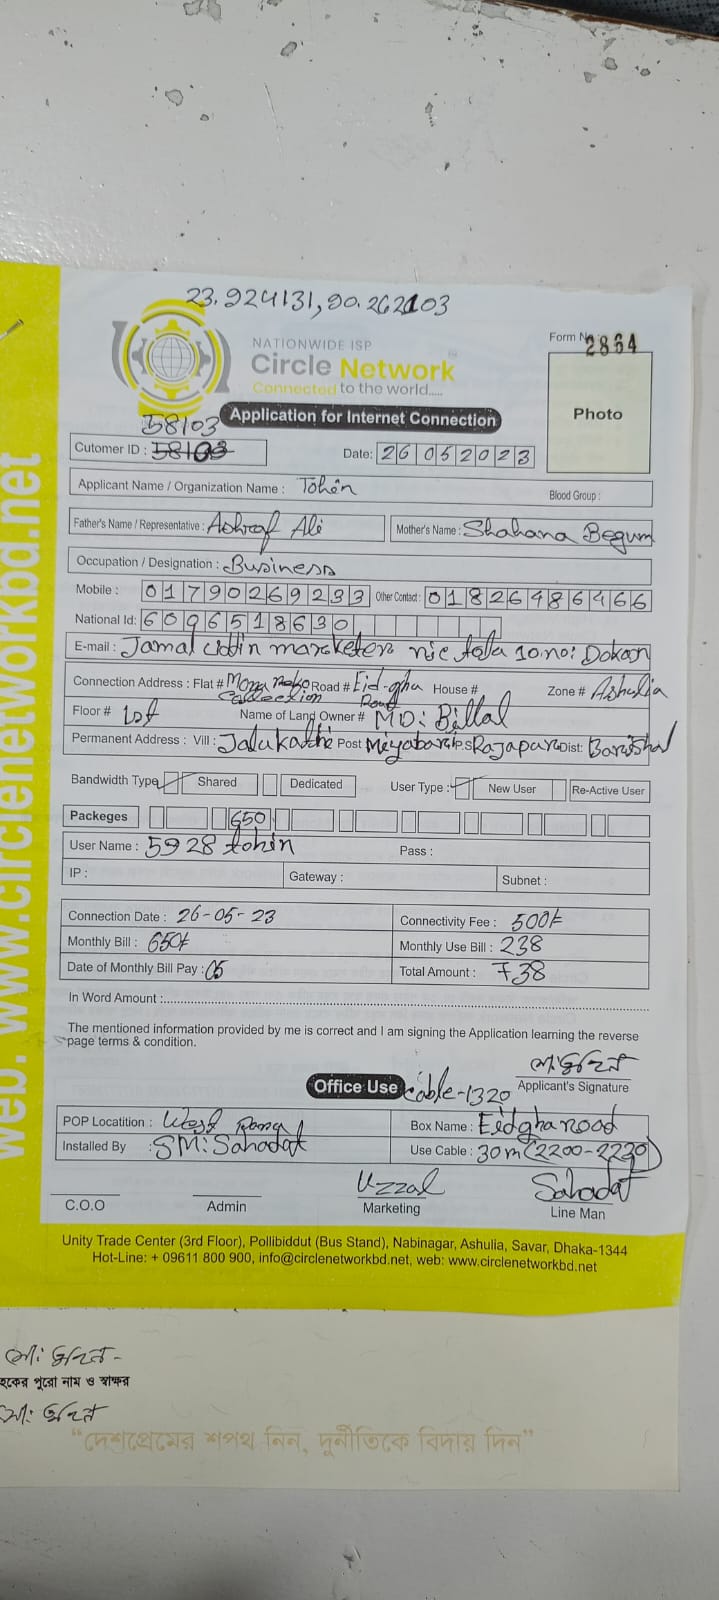 23.924131,90.262103
NATIONWIDE ISP
Circle Network
Connected to the world.....
Form No: 2864
Photo
Application for Internet Connection
58103
Cutomer ID : 58103
Date: 26052023
Applicant Name / Organization Name : Tohin
Blood Group :
Father's Name / Representative : Ashraf Ali
Mother's Name : Shahana Begum
Occupation / Designation : Business
Mobile : 01790269233 Other Contact : 01826486466
National Id: 6096518630
E-mail : Jamal Uddin marketer nic tola 10.no: Dokan
Connection Address : Flat # Collection Road # Eid-gha Road House # Zone # Ashulia
Floor # 1st Name of Land Owner # MD: Billal
Permanent Address : Vill : Jalukathi Post Miyabari P.S Rajapur Dist: Barishal
Bandwidth Type Shared Dedicated User Type : New User Re-Active User
Packeges 650
User Name : 5928 tohin Pass :
IP : Gateway : Subnet :
Connection Date : 26-05-23 Connectivity Fee : 500/-
Monthly Bill : 650/- Monthly Use Bill : 238
Date of Monthly Bill Pay : 05 Total Amount : 738
In Word Amount :
The mentioned information provided by me is correct and I am signing the Application learning the reverse
page terms & condition.
মোঃ তুহিন
Applicant's Signature
Office Use cable-1320
POP Locatition : West Box Name : Eidgha rood
Installed By : SM: Sahadat Use Cable : 30m (2200-2230)
Uzzal Sahadat
C.O.O Admin Marketing Line Man
Unity Trade Center (3rd Floor), Pollibiddut (Bus Stand), Nabinagar, Ashulia, Savar, Dhaka-1344
Hot-Line: + 09611 800 900, info@circlenetworkbd.net, web: www.circlenetworkbd.net
web: www.circlenetworkbd.net
মোঃ তুহিন
হকের পুরো নাম ও স্বাক্ষর
মোঃ তুহিন
“দেশপ্রেমের শপথ নিন, দুর্নীতিকে বিদায় দিন”